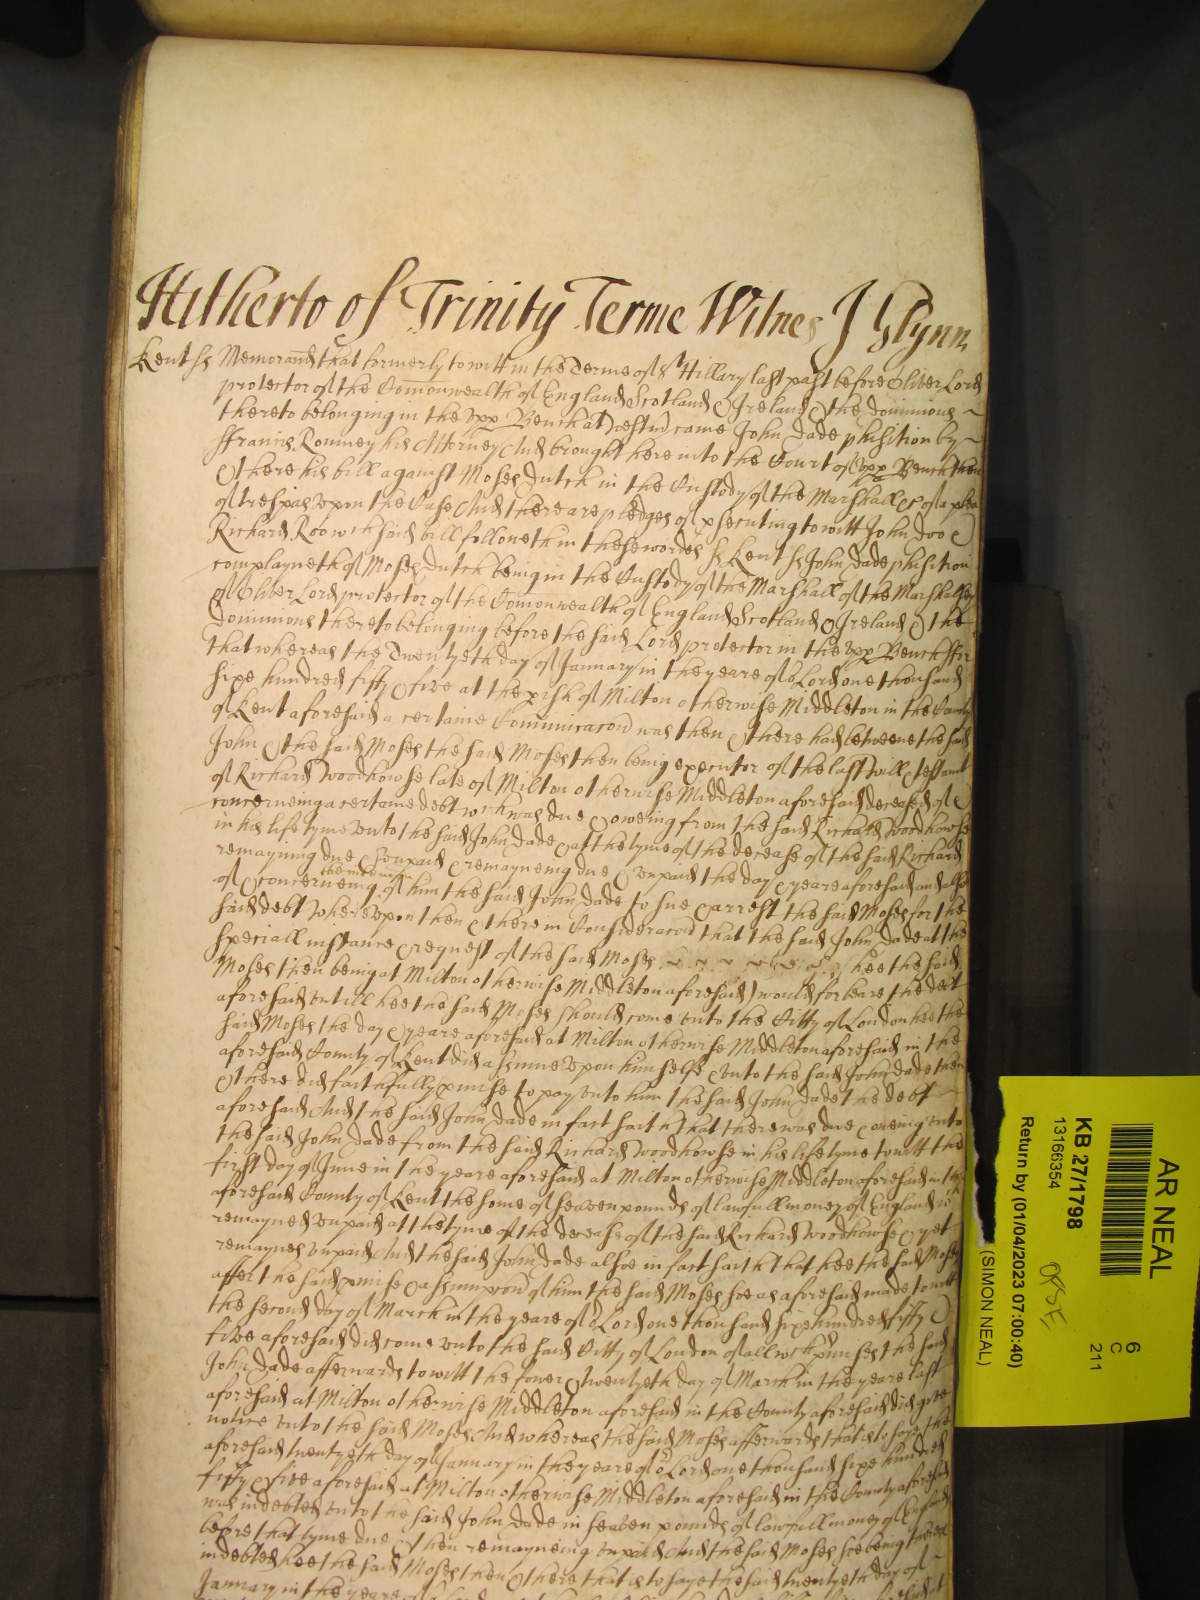 Hitherto of Trinity Terme Witnes J Glynn
Kent ss Memorand that formerly to witt in the Terme of St Hillary last past before Oliver Lord
protector of the Comonwealth of England Scotland & Ireland & the dominions
thereto belonging in the upp Bench at Westm came John Dade phisition by
ffrancis Romney his Attorney And brought here into the Court of upp Bench then
& there his bill against Moses Dutch in the Custody of the Marshall &c of a plea
of trespas upon the Case And there are pledges of psecuting to witt John Doo &
Richard Roo wch said bill followeth in these wordes ss Kent ss John Dade phisition
complayneth of Moses Dutch being in the Custody of the Marshall of the Marshalsey
of Oliver Lord protector of the Comonwealth of England Scotland & Ireland & the
dominions thereto belonging before the said Lord protector in the upp Bench ffor
that whereas the Twentyeth day of January in the yeare of or Lord one thousand
sixe hundred fifty & five at the pish of Milton otherwise Middleton in the County
of Kent aforesaid a certaine Communicacon was then & there had betweene the said
John & the said Moses the said Moses then being executor of the last will & testamt
of Richard Woodhowse late of Milton otherwise Middleton aforesaid deceased of &
concerneing a certaine debt wch was due & oweing from the said Richard Woodhowse
in his life tyme unto the said John Dade & att the tyme of the decease of the said Richard
remayning due & unpaid & remayneing due & unpaid the day & yeare aforesaid and alsoe
of & concerneing of him the said John Dade to sue & arrest the said Moses for the
said debt whereupon then & there in Consideracon that the said John Dade at the
speciall instance & request of the said Moses hee the said
Moses then being at Milton otherwise Middleton aforesaid) would forbeare the debt
aforesaid untill hee the said Moses should come unto the Citty of London hee the
said Moses the day & yeare aforesaid at Milton otherwise Middleton aforesaid in the
aforesaid County of Kent did assume upon himselfe & unto the said John Dade then
& there did faithfully pmise to pay unto him the said John Dade the debt
aforesaid And the said John Dade in fact saith that there was due & oweing unto
the said John Dade from the said Richard Woodhowse in his life tyme to witt the
first day of June in the yeare aforesaid at Milton otherwise Middleton aforesaid in the
aforesaid County of Kent the some of seaven pounds of lawfull money of England &
remayned unpaid at the tyme of the decease of the said Richard Woodhowse & yet
remaynes unpaid And the said John Dade alsoe in fact saith that hee the said Moses
after the said pmise & assumpcon of him the said Moses soe as aforesaid made to witt
the second day of March in the yeare of or Lord one thousand sixe hundred fifty &
five aforesaid did come unto the said Citty of London of all wch pmisses the said
John Dade afterwards to witt the fower & twentyeth day of March in the yeare last
aforesaid at Milton otherwise Middleton aforesaid in the County aforesaid did give
notice unto the said Moses And whereas the said Moses afterwards that is to say the
aforesaid twentyeth day of January in the yeare of or Lord one thousand sixe hundred
fifty & five aforesaid at Milton otherwise Middleton aforesaid in the County aforesaid
was indebted unto the said John Dade in seaven pounds of lawfull money of England
before that tyme due & then remayneing unpaid And the said Moses soe being
indebted hee the said Moses then & there that is to saye the said twentyeth day of
January in the yeare
AR NEAL
KB 27/1798
13166354
Return by (01/04/2023 07:00:40)
(SIMON NEAL)
6
C
211